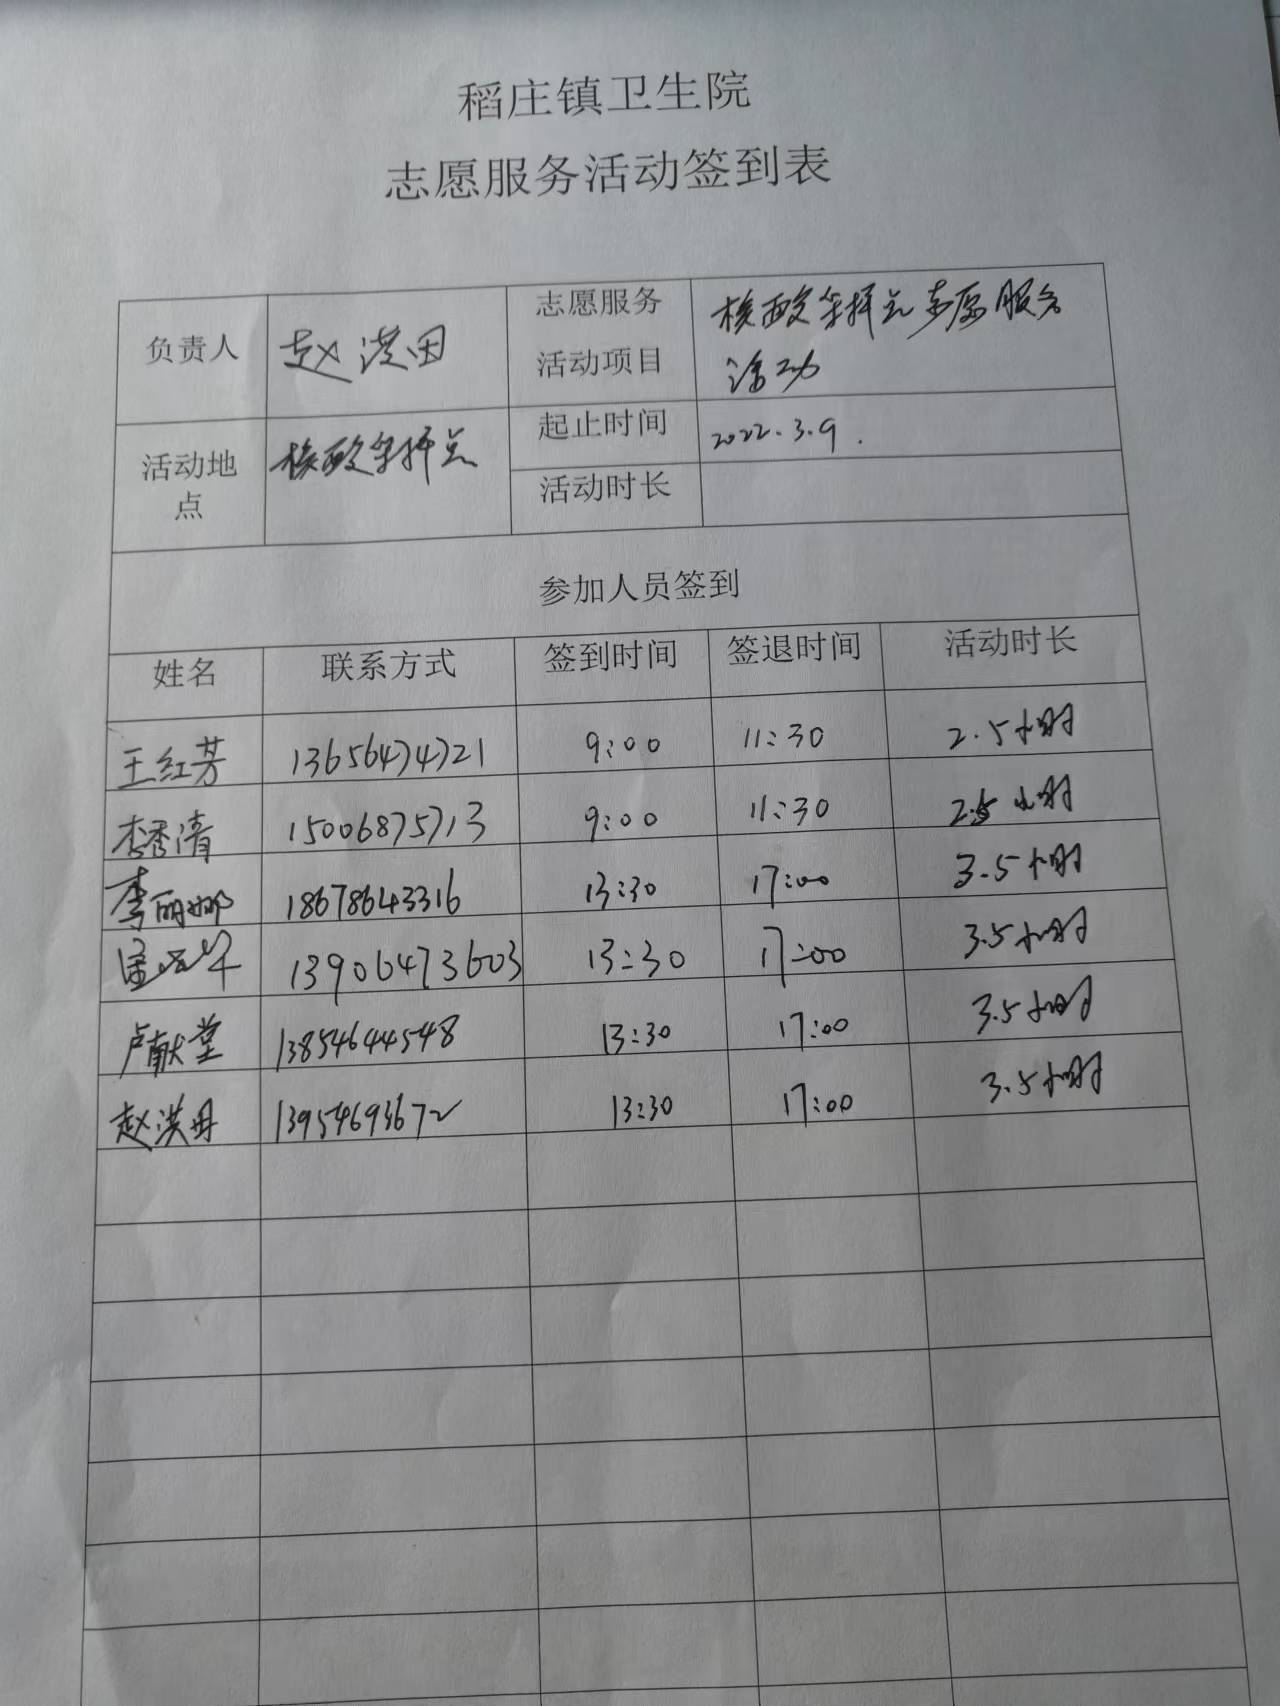 稻庄镇卫生院
志愿服务活动签到表
负责人 赵洪田 志愿服务活动项目 核酸采样点志愿服务活动
活动地点 核酸采样点 起止时间 2022.3.9.
活动时长
参加人员签到
姓名 联系方式 签到时间 签退时间 活动时长
王红芳 13656474721 9:00 11:30 2.5小时
李秀清 15006875713 9:00 11:30 2.5小时
李丽娜 18678643316 13:30 17:00 3.5小时
13906473603 13:30 17:00 3.5小时
卢献堂 13854644548 13:30 17:00 3.5小时
赵洪丹 13954693672 13:30 17:00 3.5小时